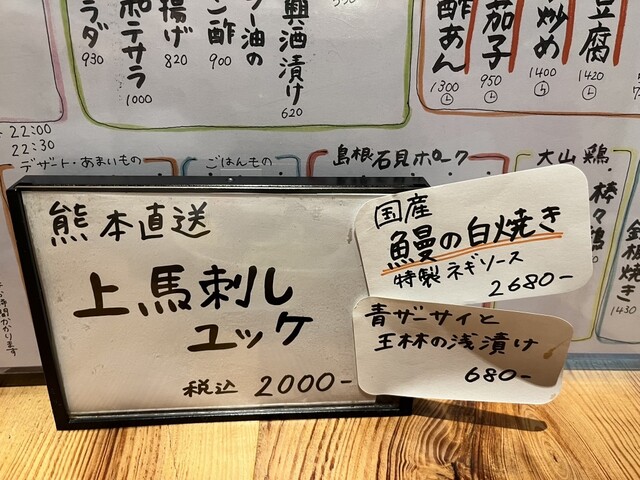 ラダ
930
ポテサラ
1000
揚げ
820
ン酢
900
ー油の
興酒漬け
620
酢あん
1300
茄子
950
炒め
1400
豆腐
1420
22:00
22:30
デザート・あまいもの
ごはんもの
島根石見ポーク
大山鶏
棒々鶏
鉄板焼き
1430
熊本直送
上馬刺し
ユッケ
税込 2000-
国産
鰻の白焼き
特製ネギソース
2680-
青ザーサイと
王林の浅漬け
680-